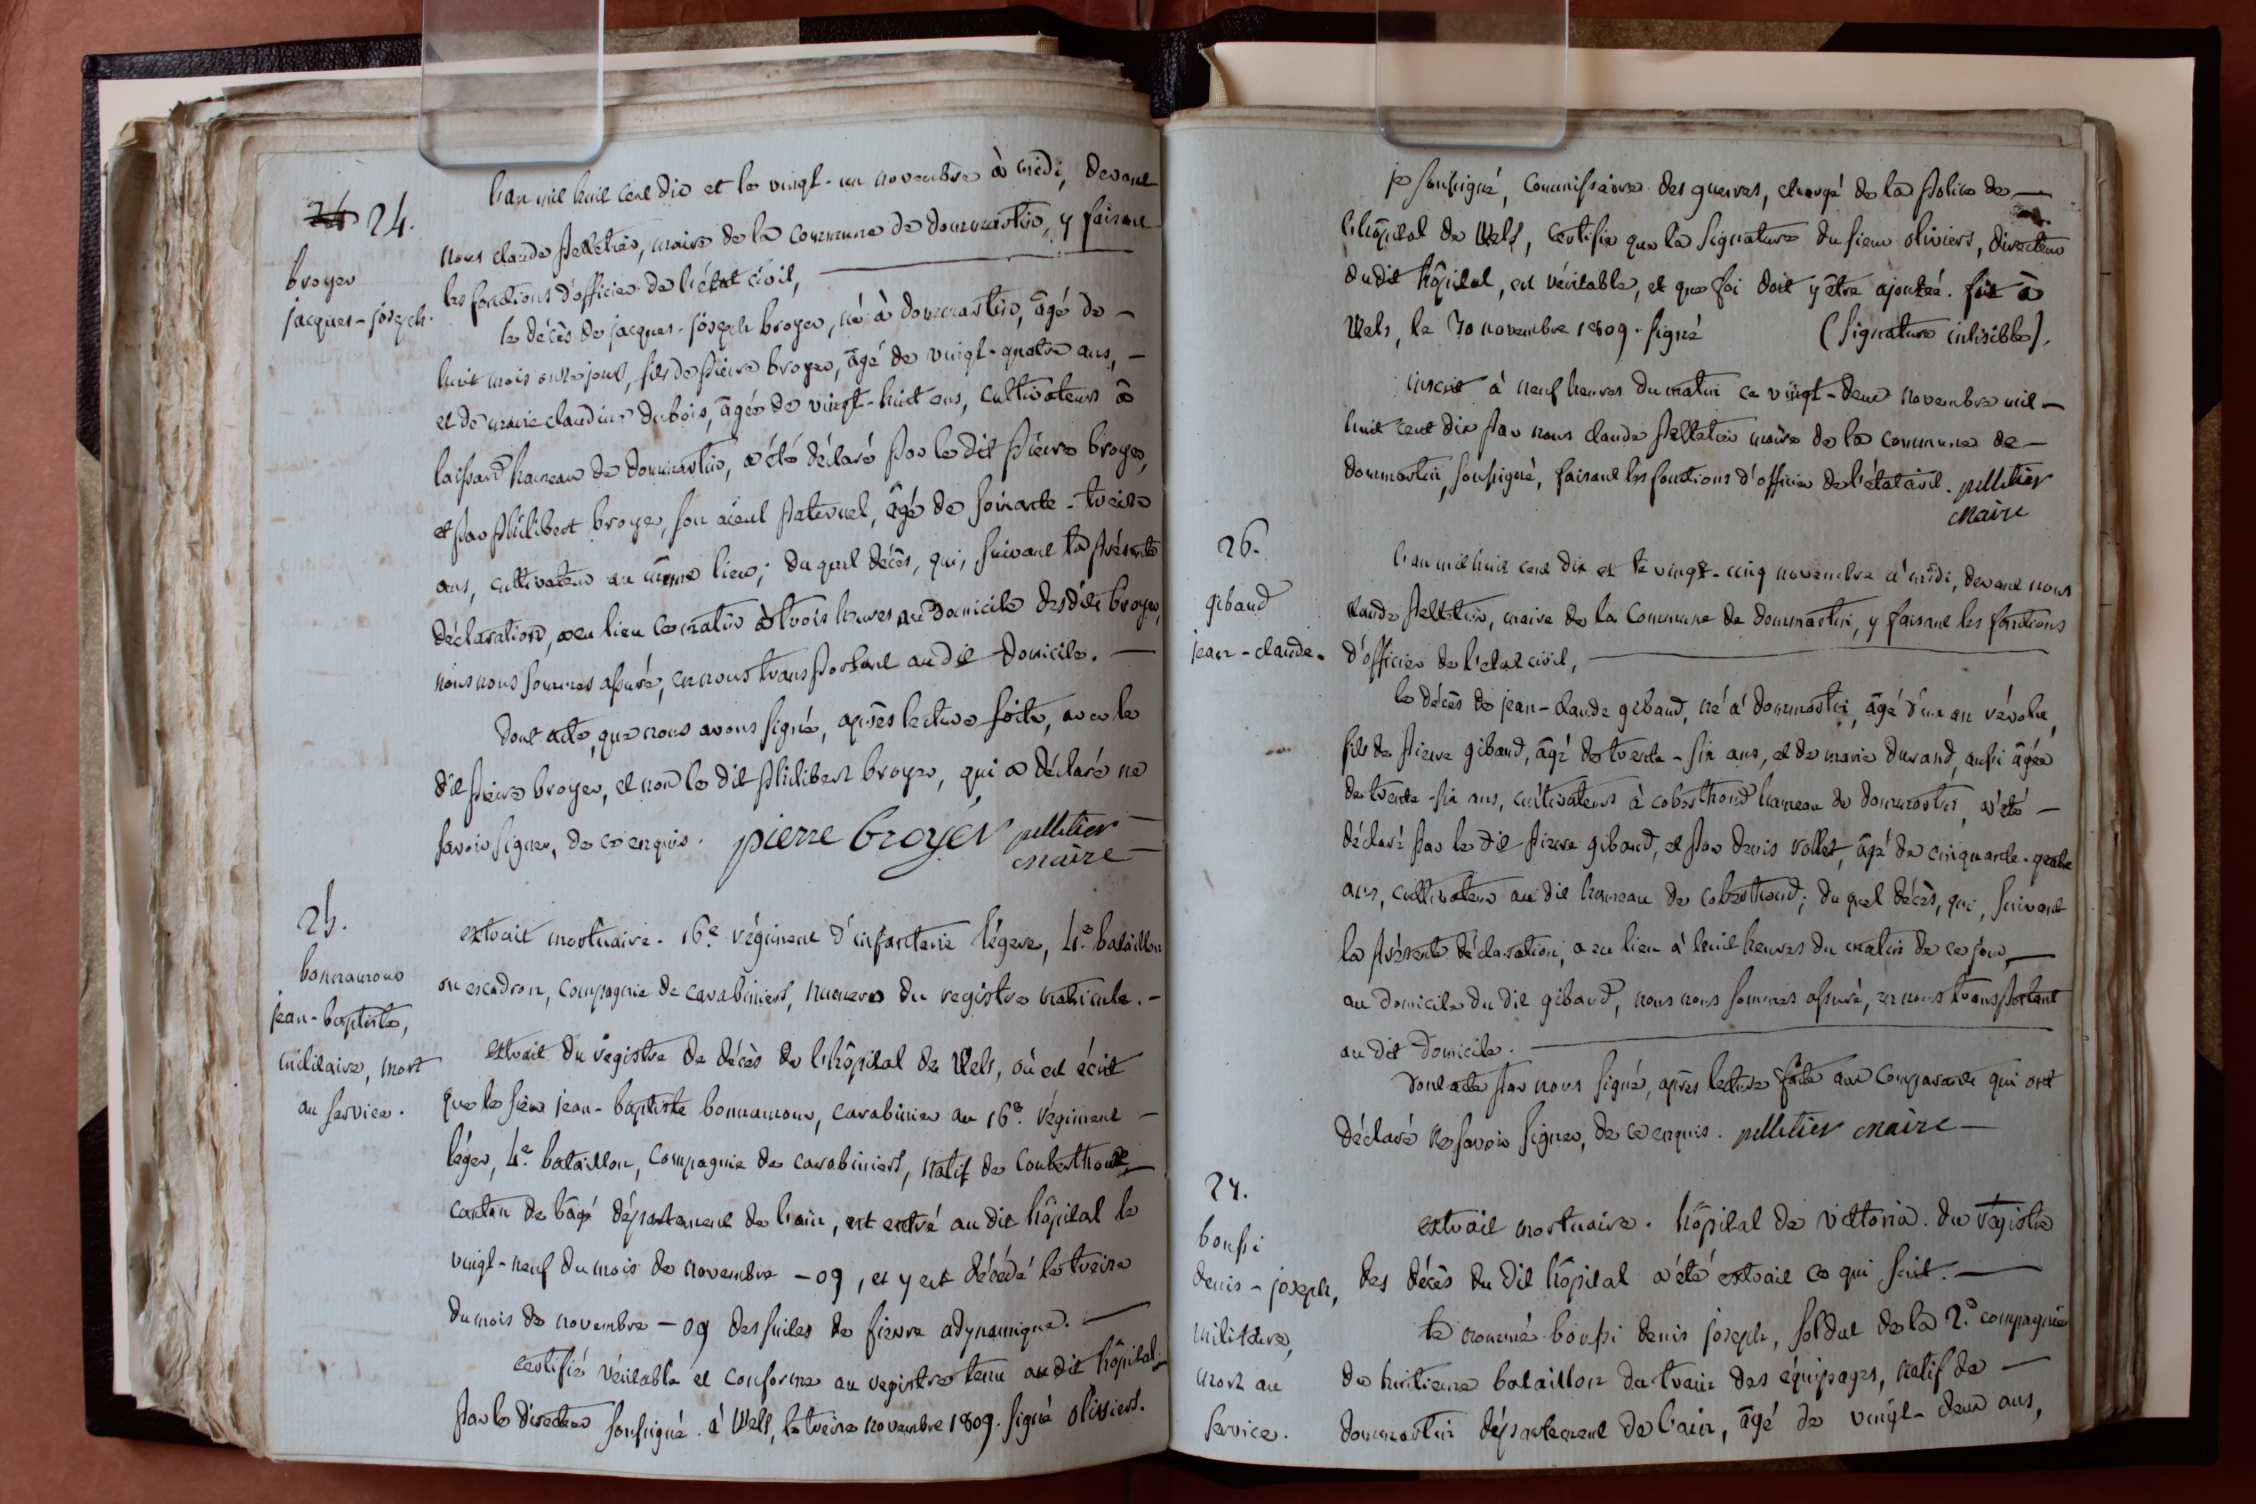 24. 24.
broyer
jacques-joseph.
L'an mil huit cent dix et le vingt-un novembre à midi, devant
nous claude pelletier, maire de la commune de dommartin, y faisant
les fonctions d'officier de l'état civil,
le décès de jacques-joseph broyer, né à dommartin, âgé de
huit mois onze jours, fils de pierre broyer, âgé de vingt-quatre ans,
et de marie claudine dubois, âgée de vingt-huit ans, cultivateurs à
hameau de dommartin, a été déclaré par le dit pierre broyer,
et par philibert broyer, son aïeul paternel, âgé de soixante-treize
ans, cultivateur au même lieu; du quel décès, qui, suivant la présente
déclaration, a eu lieu ce matin à trois heures au domicile desdits broyer,
nous nous sommes assuré, en nous transportant au dit domicile.
Dont acte, que nous avons signé, après lecture faite, avec le
dit pierre broyer, et non le dit philibert broyer, qui a déclaré ne
savoir signer, de ce enquis. pierre broyer pelletier
maire
25.
bonnamour
jean-baptiste,
militaire, mort
au service.
extrait mortuaire. 16.e régiment d'infanterie légere, 4.e bataillon
ou escadron, compagnie de carabiniers, numero du registre matricule.
extrait du registre de décès de l'hôpital de Wels, où est écrit
que le sieur jean-baptiste bonnamour, carabinier au 16.e régiment
léger, 4.e bataillon, compagnie de carabiniers, natif de Couberthoud,
canton de bâgé département de l'ain, est entré au dit hôpital le
vingt-neuf du mois de novembre -09, et y est décédé le treize
du mois de novembre -09 des suites de fievre adynamique.
certifié véritable et conforme au registre tenu au dit hôpital
par le directeur soussigné. à Wels, le treize novembre 1809. signé oliviers.
je soussigné, commissaire des guerres, chargé de la police de
l'hôpital de Wels, certifie que la signature du sieur oliviers, directeur
dudit hôpital, est véritable, et que foi doit y être ajoutée. fait à
Wels, le 30 novembre 1809. signé (signature inlisible).
inscrit à neuf heures du matin ce vingt-deux novembre mil
huit cent dix par nous claude pelletier maire de la commune de
dommartin, soussigné, faisant les fonctions d'officier de l'état civil. pelletier
maire
26.
gibaud
jean-claude.
L'an mil huit cent dix et le vingt-cinq novembre à midi, devant nous
claude pelletier, maire de la commune de dommartin, y faisant les fonctions
d'officier de l'état civil,
le décès de jean-claude gibaud, né à dommartin, âgé d'un an révolu,
fils de pierre gibaud, âgé de trente-six ans, et de marie durand, aussi âgée
de trente-six ans, cultivateurs à coberthoud hameau de dommartin, a été
déclaré par le dit pierre gibaud, et par denis vollet, âgé de cinquante-quatre
ans, cultivateur au dit hameau de coberthoud; du quel décès, qui, suivant
la présente déclaration, a eu lieu à huit heures du matin de ce jour,
au domicile du dit gibaud, nous nous sommes assuré, en nous transportant
au dit domicile.
Dont acte par nous signé, après lecture faite aux comparants qui ont
déclaré ne savoir signer, de ce enquis. pelletier maire
27.
boussi
denis-joseph,
militaire,
mort au
service.
extrait mortuaire. hôpital de vittoria. du régistre
des décès du dit hôpital a été extrait ce qui suit.
le nommé boussi denis joseph, soldat de la 2.e compagnie
du huitieme bataillon du train des équipages, natif de
dommartin département de l'ain, âgé de vingt-deux ans,